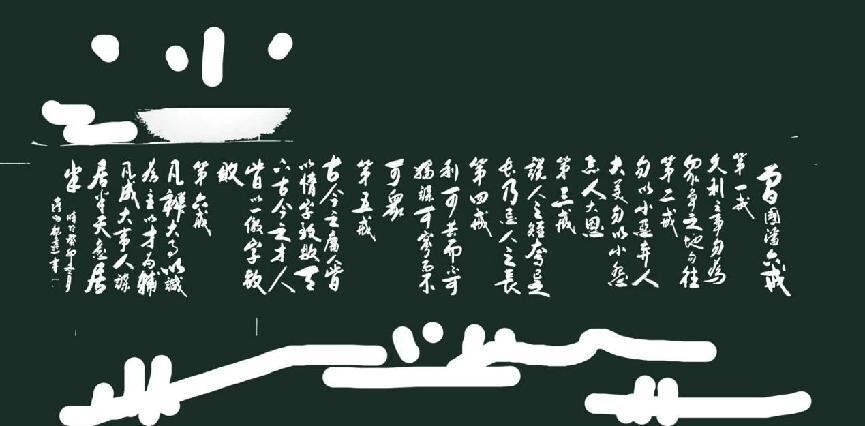 曾國藩六戒
第一戒
久利之事勿為
眾爭之地勿往
第二戒
勿以小惡弃人
大美勿以小怨
忘人大恩
第三戒
說人之短夸己
長乃忌人之長
第四戒
利可共而不可
獨謀可寡而不
可眾
第五戒
古今之庸人皆
以惰字致敗天
下古今之才人
皆以一傲字致
敗
第六戒
凡辦大事以識
為主以才為輔
凡成大事人謀
居半天意居
半